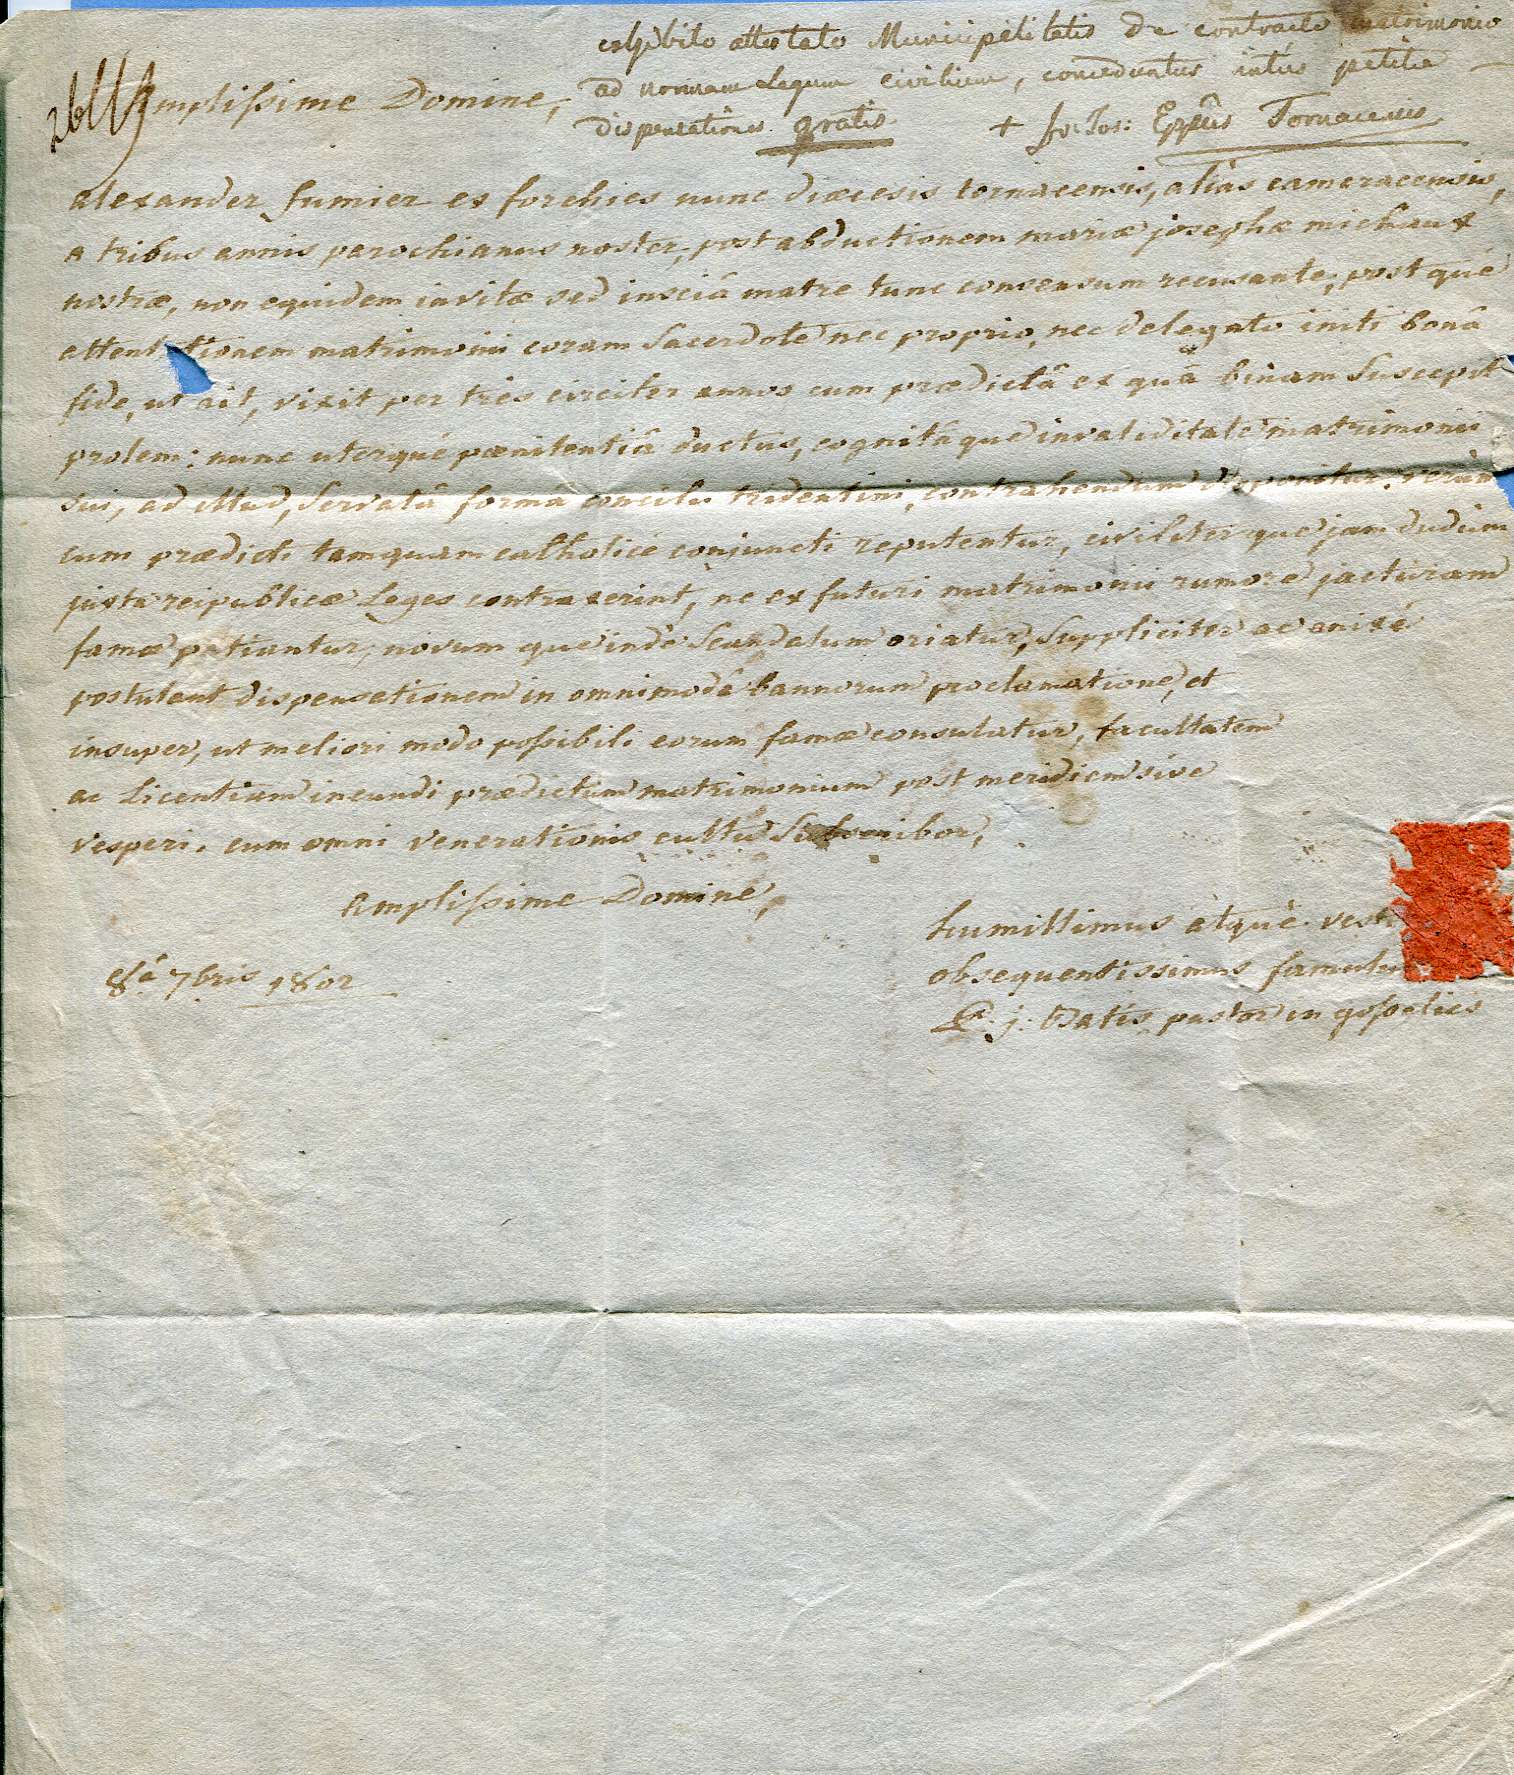 exhibito attestato Municipalitatis de contracto matrimonio
ad normam Legum civilium, conceduntur intùs petitæ
dispensationes gratis. + fr: Jos: Eppûs Tornacensis
Amplissime Domine,
alexander fumier ex forchies nunc diœcesis tornacensis, aliàs cameracensis,
a tribus annis parochianus noster, post abductionem mariæ josephæ michaux
nostræ, non equidem invitæ sed insciâ matre tunc consensum recusante, post quê
attentationem matrimonii coram Sacerdote nec proprio, nec delegato initi bonâ
fide, ut ait, vixit per tres circiter annos cum prædictâ ex quâ binam Suscepit
prolem: nunc uterquè pœnitentiâ ductus, cognitâ què invaliditate matrimonii
sui, ad illud, Servatâ formâ concilii tridentini, contrahendum disponitur. verùm
cum prædicti tamquam catholicè conjuncti reputentur, civiliter què jam dudùm
juxta reipublicæ Leges contraxerint, ne ex futuri matrimonii rumore jacturam
famæ patiantur, novum què indè Scandalum oriatur, Suppliciter ac enixè
postulant dispensationem in omnimodâ bannorum proclamatione, et
insuper, ut meliori modo possibili eorum famæ consulatur, facultatem
ac Licentiam ineundi prædictum matrimonium post meridiem sive
vesperi. cum omni venerationis cultu Subscribor,
Amplissime Domine,
humillimus àtquè vest
obsequentissimus famulu
8â 7bris 1802
j: Batis pastor in gosselies